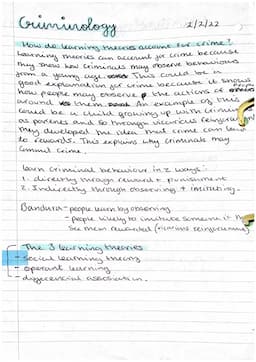 Criminology 2/2/22
How do learning theories account for crime?
Learning theories can account for crime because
they show how criminals may observe behaviours
from a young age. This could be a
good explanation for crime because it shows
how people may observe the actions of
around An example of this
could be a child growing up with
as parents and so through vicarious
they developed the idea that crime can lead
to rewards. This explains why criminals may
commit crime.
learn criminal behaviour in 2 ways:
1. directly through reward + punishment
2. Indirectly through observing + imitating.
Bandura - people learn by observing
- people likely to imitate someone if
see them rewarded (vicarious reinforcement)
The 3 learning theories
- social learning theory
- operant learning
- differential association.